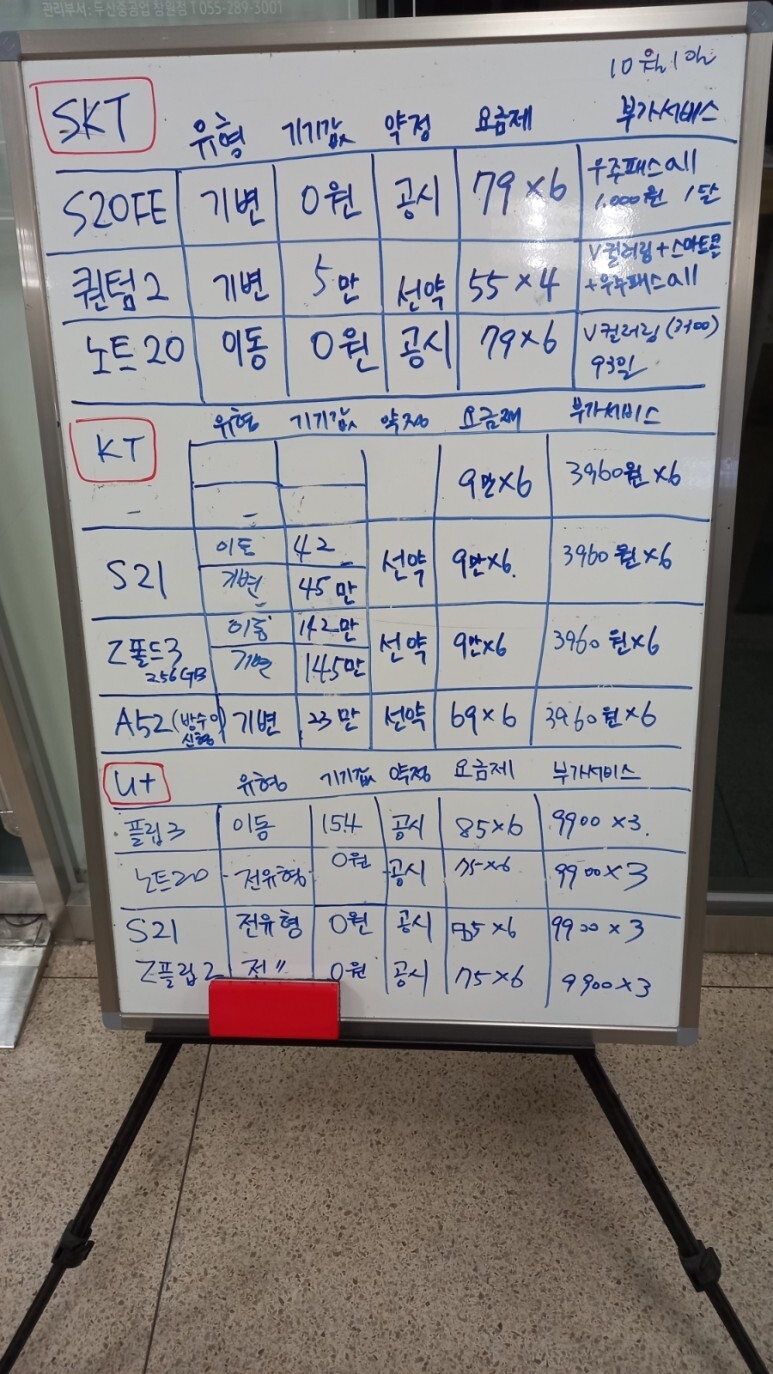 관리부서 : 두산중공업 창원점 T 055-289-3001
10월 1일
SKT 유형 기기값 약정 요금제 부가서비스
S20FE 기변 0원 공시 79×6 우주패스all 1,000원 1달
퀀텀2 기변 5만 선약 55×4 V컬러링+스마트콜+우주패스all
노트20 이동 0원 공시 79×6 V컬러링 93일
KT 유형 기기값 약정 요금제 부가서비스
9만×6 3960원×6
S21 이동 42 선약 9만×6. 3960원×6
기변 45만
Z폴드3 256GB 이동 142만 선약 9만×6 3960원×6
기변 145만
A52 (방수 신형) 기변 23만 선약 69×6 3960원×6
U+ 유형 기기값 약정 요금제 부가서비스
플립3 이동 154 공시 85×6 9900×3.
노트20 전유형 0원 공시 75×6 9900×3
S21 전유형 0원 공시 ×6 9900×3
Z플립2 전〃 0원 공시 75×6 9900×3